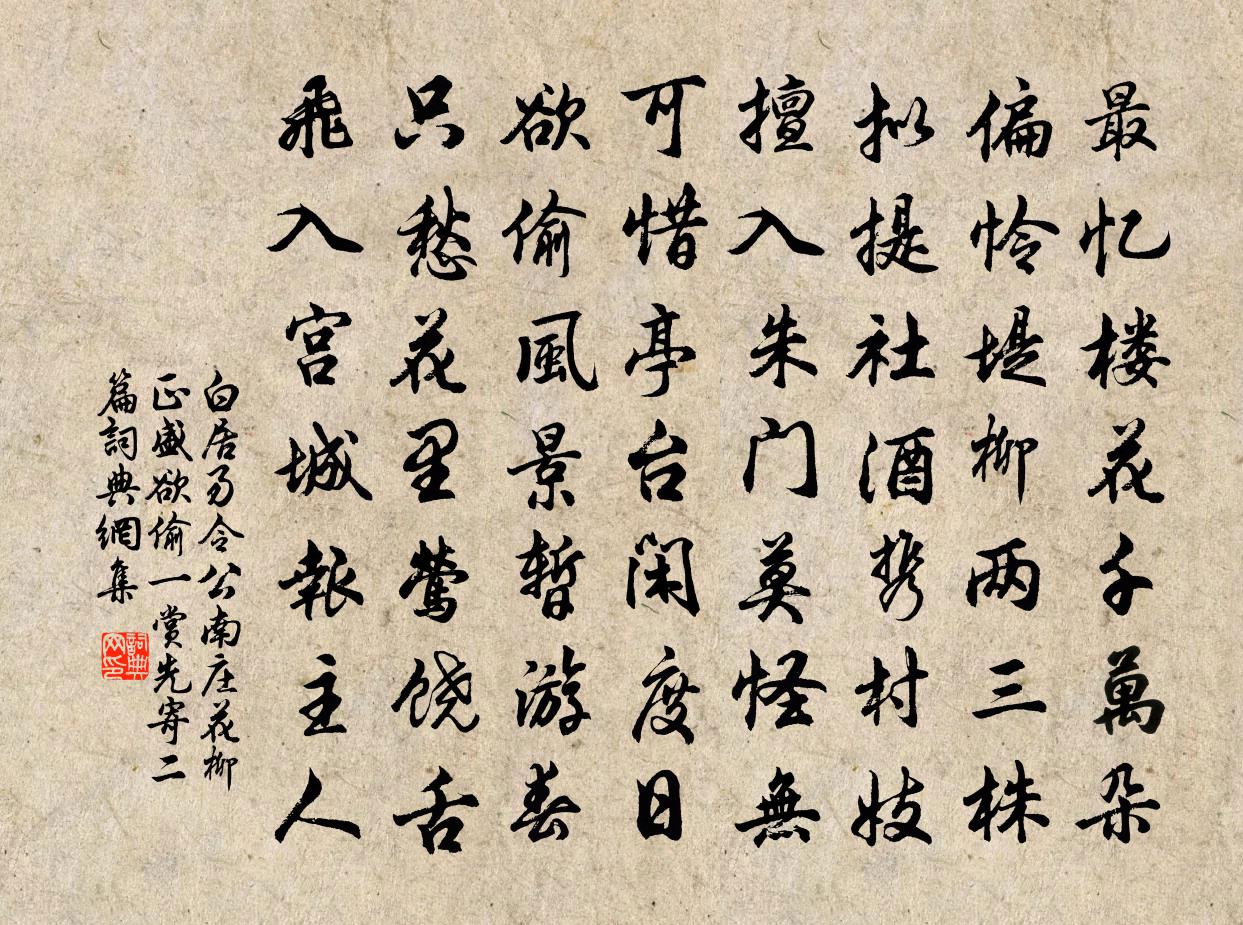 最忆楼花千萬朵
偏怜堤柳两三株
拟提社酒携村妓
擅入朱门莫怪無
可惜亭台闲度日
欲偷風景暂游春
只愁花里莺饶舌
飛入宫城報主人
白居易令公南庄花柳
正盛欲偷一赏先寄二
篇詞典網集
詞典
网印